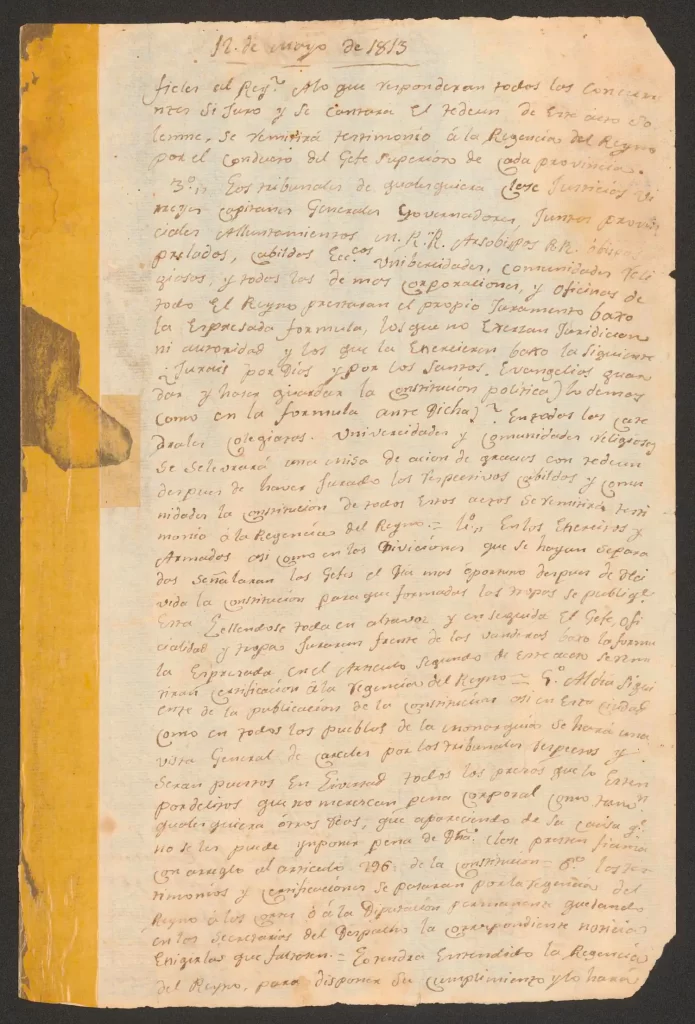 12. de Mayo de 1813
fieles al Rey?. Alo que responderan todos los Concurr
entes Si Juro y se cantara el tedeum de Este acto So
lemne, se remitirá testimonio á la Regencia del Reyno
por el Conducto del Gefe Superior de cada provincia.
3.º,, Los tribunales de qualesquiera Clase Justicias Vi
rreyes Capitanes Generales Governadores, Juntas provin
ciales Alluntamientos M. R. R. Arsobispos R.R. Obispos
prelados, cabildos Ecc.cos Unibercidades, Comunidades reli
giosas, y todas las demas Corporaciones, y oficinas de
todo El Reyno prestaran el propio Juramento baxo
la Espresada formula, los que no Exersan Juridicion
ni autoridad y los que la Exercieren baxo la siguiente
Jurais por Dios y por los Santos. Evangelios guar
dar y haser guardar la Constitucion politica) lo demas
como en la formula ante Dicha)? En todas las cate
drales Colegiatas. Univercidades y Comunidades religiosas
Se Selevrará una misa de acion de gracias con tedeum
despues de haver Jurado los respectivos Cabildos y Comu
nidades la Constitucion de todos Estos actos Se remitirá testi
monio á la Regencia del Reyno.= 4.º,, En los Exercitos y
Armadas asi como en las Diviciones que se hayan Separa
das Señalaran los Gefes el Dia mas oportuno despues de Reci
vida la Constitucion para que formadas las tropas se publiqe
Esta Lellendose toda en altavoz y en seguida El Gefe, ofi
cialidad y tropa Juraran frente de las vanderas baxo la formu
la Espresada en el Articulo Segundo de Este acto Se remi
tiran Certificacion á la regencia del Reyno = 5.º Al dia sigui
ente de la publicacion de la Constitucion asi en Esta Ciudad
Como en todos los pueblos de la monarquia Se hará una
vista General de carceles por los tribunales respectos y
Seran puestos En Livertad todos los presos que lo Esten
por delitos que no merescan pena Corporal Como tamn
qualesquiera otros Reos, que apareciendo de su Causa q.e
no se les puede ymponer pena de Dha. Clase presten fianza
Con arreglo al articulo 296. de la Constitucion= 6.º los tes
timonios y Certificaciones Se pasaran por la regencia del
Reyno á las Cortes ó á la Diputacion permanente quedando
en las Secretarias del Despacho la Correspondiente noticia
Exigirlas que faltasen.= Lo tendrá Entendido la Regencia
del Reyno, para disponer Su Cumplimiento y lo hará